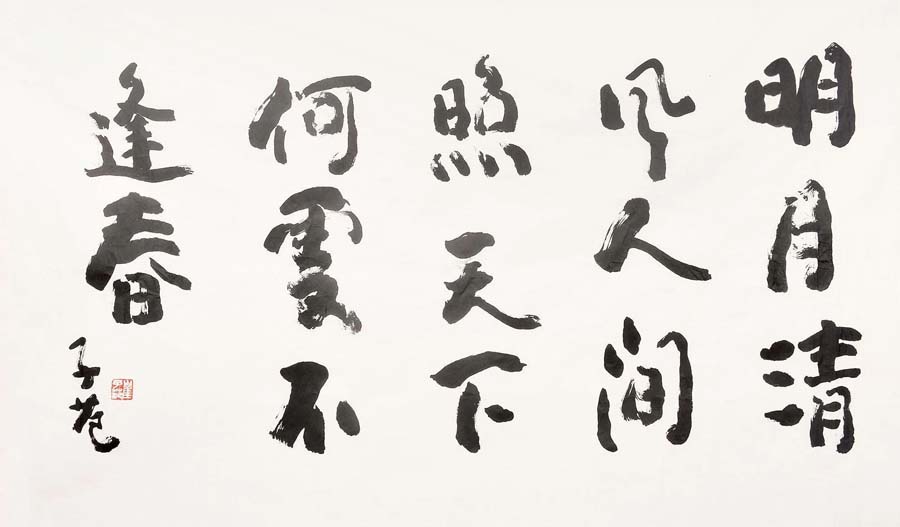 明月清
风人间
照天下
何處不
逢春
子范